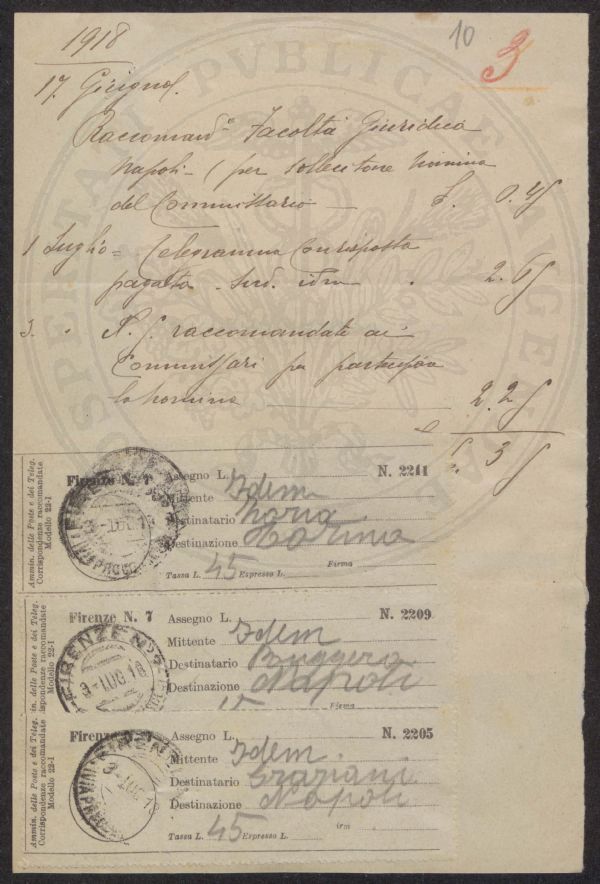 1918
10
3
17. Giugno.
Raccomanda Facoltà Giuridica
Napoli - (per sollecitare nomina
del Commissario — £. 0.45
1 Luglio = Telegramma Con risposta
pagata - idem . 2.65
3. " N. 5 raccomandate ai
Commissari per
la nomina 2.25
£. 5
Firenze N. 7 Assegno L. N. 2211
Mittente Idem
Destinatario
Destinazione
Firma
Tassa L. 45 Espresso L.
Ammin. delle Poste e dei Teleg.
Corrispondenze raccomandate
Modello 22-I
Firenze N. 7 Assegno L. N. 2209
Mittente Idem
Destinatario Ruggero
Destinazione Napoli
Firma
in. delle Poste e dei Teleg.
ispondenze raccomandate
Modello 22-I
FIRENZE N° 7
3-LUG 18
Firenze Assegno L. N. 2205
Mittente Idem
Destinatario Graziani
Destinazione Napoli
Tassa L. 45 Espresso L.
Ammin. delle Poste e dei Teleg.
Corrispondenze raccomandate
Modello 22-I